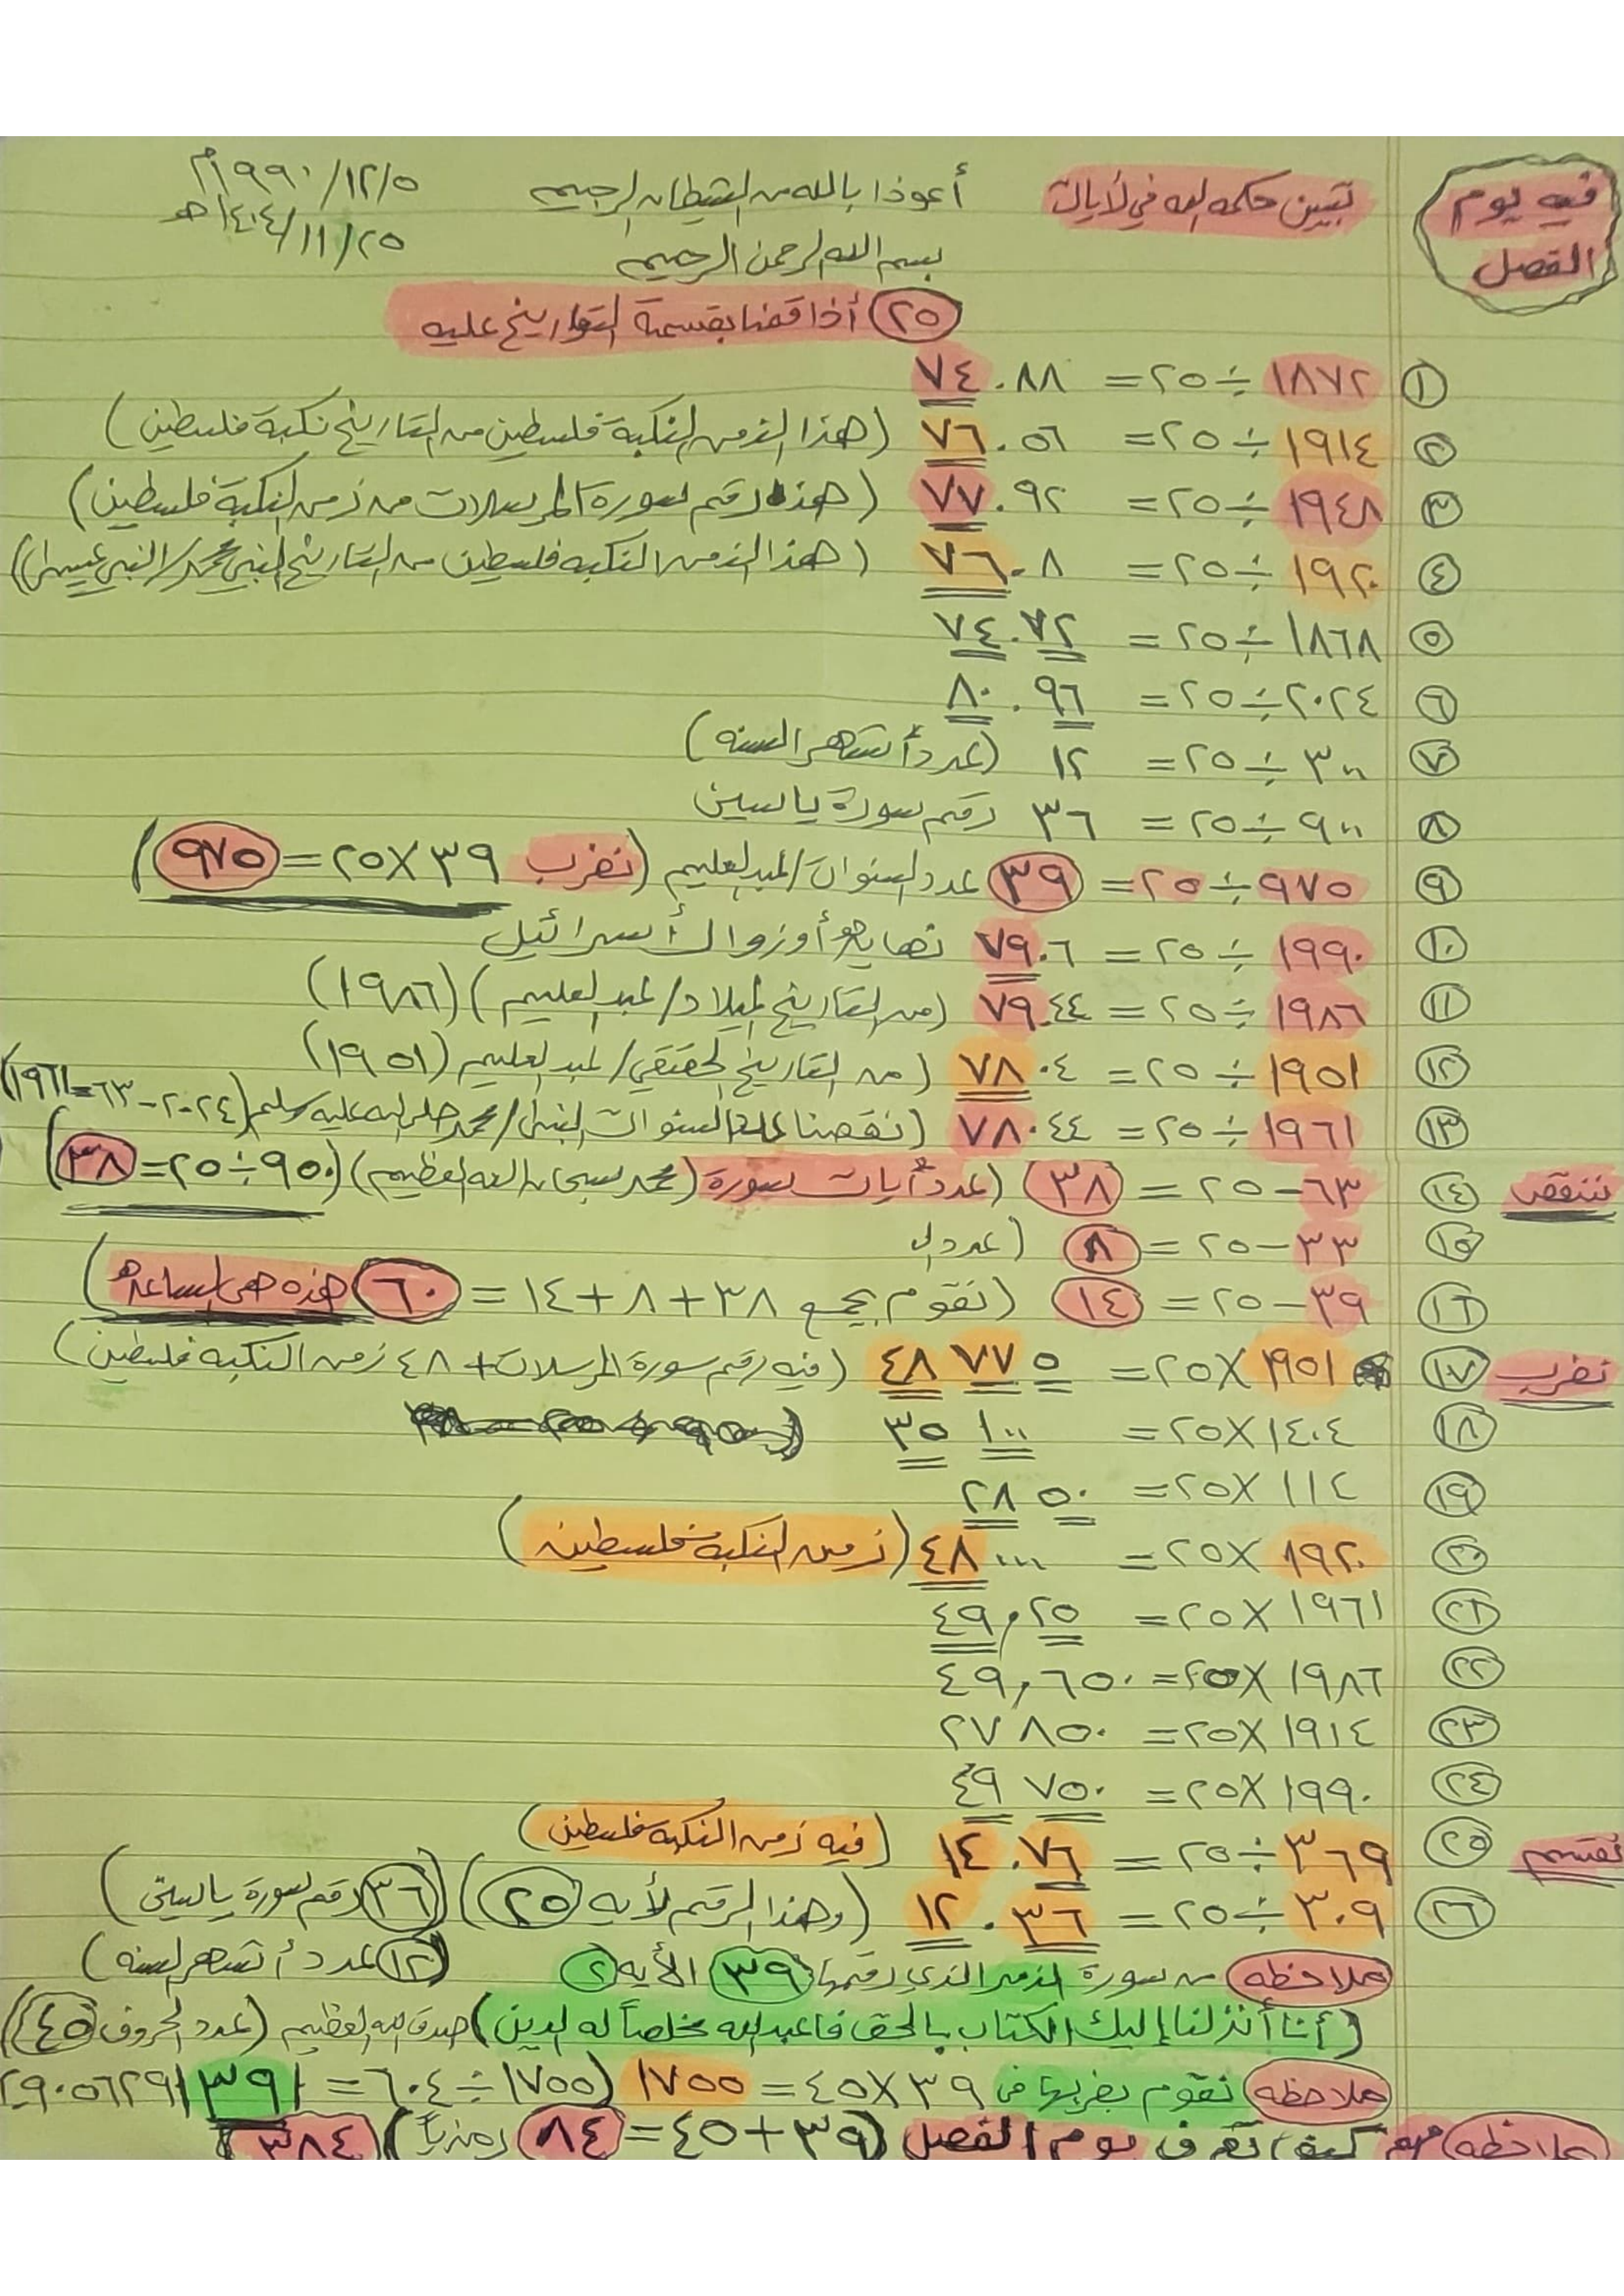 فيه يوم الفصل
تبين حكمه الله في لأيات
أعوذا بالله من الشيطان الرجيم
١٩٩٠/١٢/٥م
بسم الله الرحمن الرحيم
١٤٠٤/١١/٢٥هـ
٢٥ أذا قمنا بقسمة التواريخ عليه
١ ١٨٧٢ ÷ ٢٥ = ٧٤.٨٨
٢ ١٩١٤ ÷ ٢٥ = ٧٦.٥٦ (هذا الزمن النكبة فلسطين من التاريخ نكبة فلسطين)
٣ ١٩٤٨ ÷ ٢٥ = ٧٧.٩٢ (هذا رقم سورة المرسلات من زمن النكبة فلسطين)
٤ ١٩٢٠ ÷ ٢٥ = ٧٦.٨ (هذا الزمن النكبه فلسطين من التاريخ النبي محمد/النبي عيسى)
٥ ١٨٦٨ ÷ ٢٥ = ٧٤.٧٢
٦ ٢٠٢٤ ÷ ٢٥ = ٨٠.٩٦
٧ ٣٠٠ ÷ ٢٥ = ١٢ (عدد أشهر السنه)
٨ ٩٠٠ ÷ ٢٥ = ٣٦ رقم سورة ياسين
٩ ٩٧٥ ÷ ٢٥ = ٣٩ عدد السنوات/عبدالعليم (نضرب ٣٩ × ٢٥ = ٩٧٥)
١٠ ١٩٩٠ ÷ ٢٥ = ٧٩.٦ نهايه أو زوال أسرائيل
١١ ١٩٨٦ ÷ ٢٥ = ٧٩.٤٤ (من التاريخ الميلاد/عبدالعليم) (١٩٨٦)
١٢ ١٩٥١ ÷ ٢٥ = ٧٨.٠٤ (من التاريخ الحقيقي/عبدالعليم (١٩٥١)
١٣ ١٩٦١ ÷ ٢٥ = ٧٨.٤٤ (نقصنا عدد السنوات النبى/محمد صلى الله عليه وسلم (٢٠٢٤-٦٣=١٩٦١)
ننقص ١٤ ٦٣ - ٢٥ = ٣٨ (عدد أيات سورة (محمد سبحان الله العظيم) (٩٥٠ ÷ ٢٥ = ٣٨)
١٥ ٣٣ - ٢٥ = ٨ (عدد ال
١٦ ٣٩ - ٢٥ = ١٤ (نقوم بجمع ٣٨ + ٨ + ١٤ = ٦٠ هذه هى الساعه)
نضرب ١٧ ١٩٥١ × ٢٥ = ٤٨ ٧٧ ٥ (فيه رقم سورة المرسلات + ٤٨ زمن النكبه فلسطين)
١٨ ١٤٠٤ × ٢٥ = ٣٥ ١٠٠
١٩ ١١٤ × ٢٥ = ٢٨ ٥٠
٢٠ ١٩٢٠ × ٢٥ = ٤٨٠٠٠ (زمن النكبه فلسطين)
٢١ ١٩٦١ × ٢٥ = ٤٩,٢٥
٢٢ ١٩٨٦ × ٢٥ = ٤٩,٦٥٠
٢٣ ١٩١٤ × ٢٥ = ٢٧٨٥٠
٢٤ ١٩٩٠ × ٢٥ = ٤٩ ٧٥٠
نقسم ٢٥ ٣٦٩ ÷ ٢٥ = ١٤.٧٦ (فيه زمن النكبه فلسطين)
٢٦ ٣٠٩ ÷ ٢٥ = ١٢.٣٦ (وهذا الرقم لأيه ٢٥) (٣٦ رقم سورة ياسين)
ملاحظه من سورة الزمر الذي رقمها ٣٩ الأيه ٢ (١٢ عدد أشهر السنه)
(أنا أنزلنا إليك الكتاب بالحق فاعبد الله مخلصاً له الدين) صدق الله العظيم (عدد الحروف ٤٥)
ملاحظه نقوم بضربها فى ٣٩ × ٤٥ = ١٧٥٥ (١٧٥٥ ÷ ٦٠٤ = ٢٩٠٥٦٢٩١٣٩١
ملاحظه مهم كيف نعرف يوم الفصل (٣٩ + ٤٥ = ٨٤ رمزياً) (٣٨٤